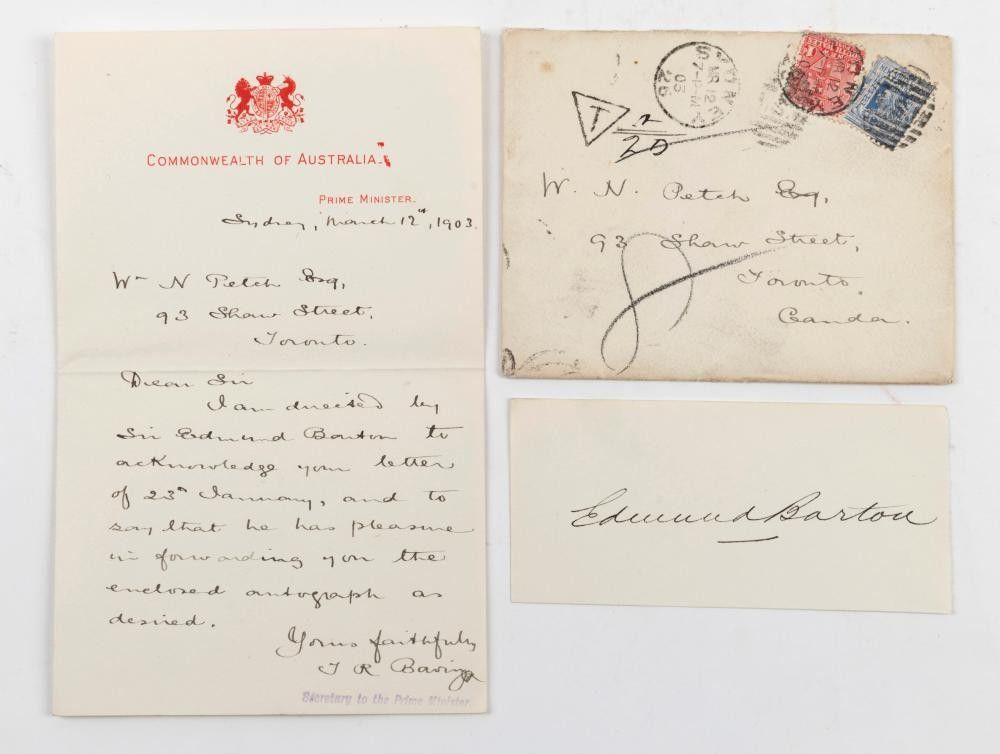 COMMONWEALTH OF AUSTRALIA.
PRIME MINISTER.
Sydney, March 12th, 1903.
Wm N Petch Esq,
93 Shaw Street,
Toronto.
Dear Sir
I am directed by
Sir Edmund Barton to
acknowledge your letter
of 23rd January, and to
say that he has pleasure
in forwarding you the
enclosed autograph as
desired.
Yours faithfully
T R
Secretary to the Prime Minister.
SYDNEY
MR 12
03
26
T
20
W. N. Petch Esq,
93 Shaw Street,
Toronto.
Canda.
8
Edmund Barton